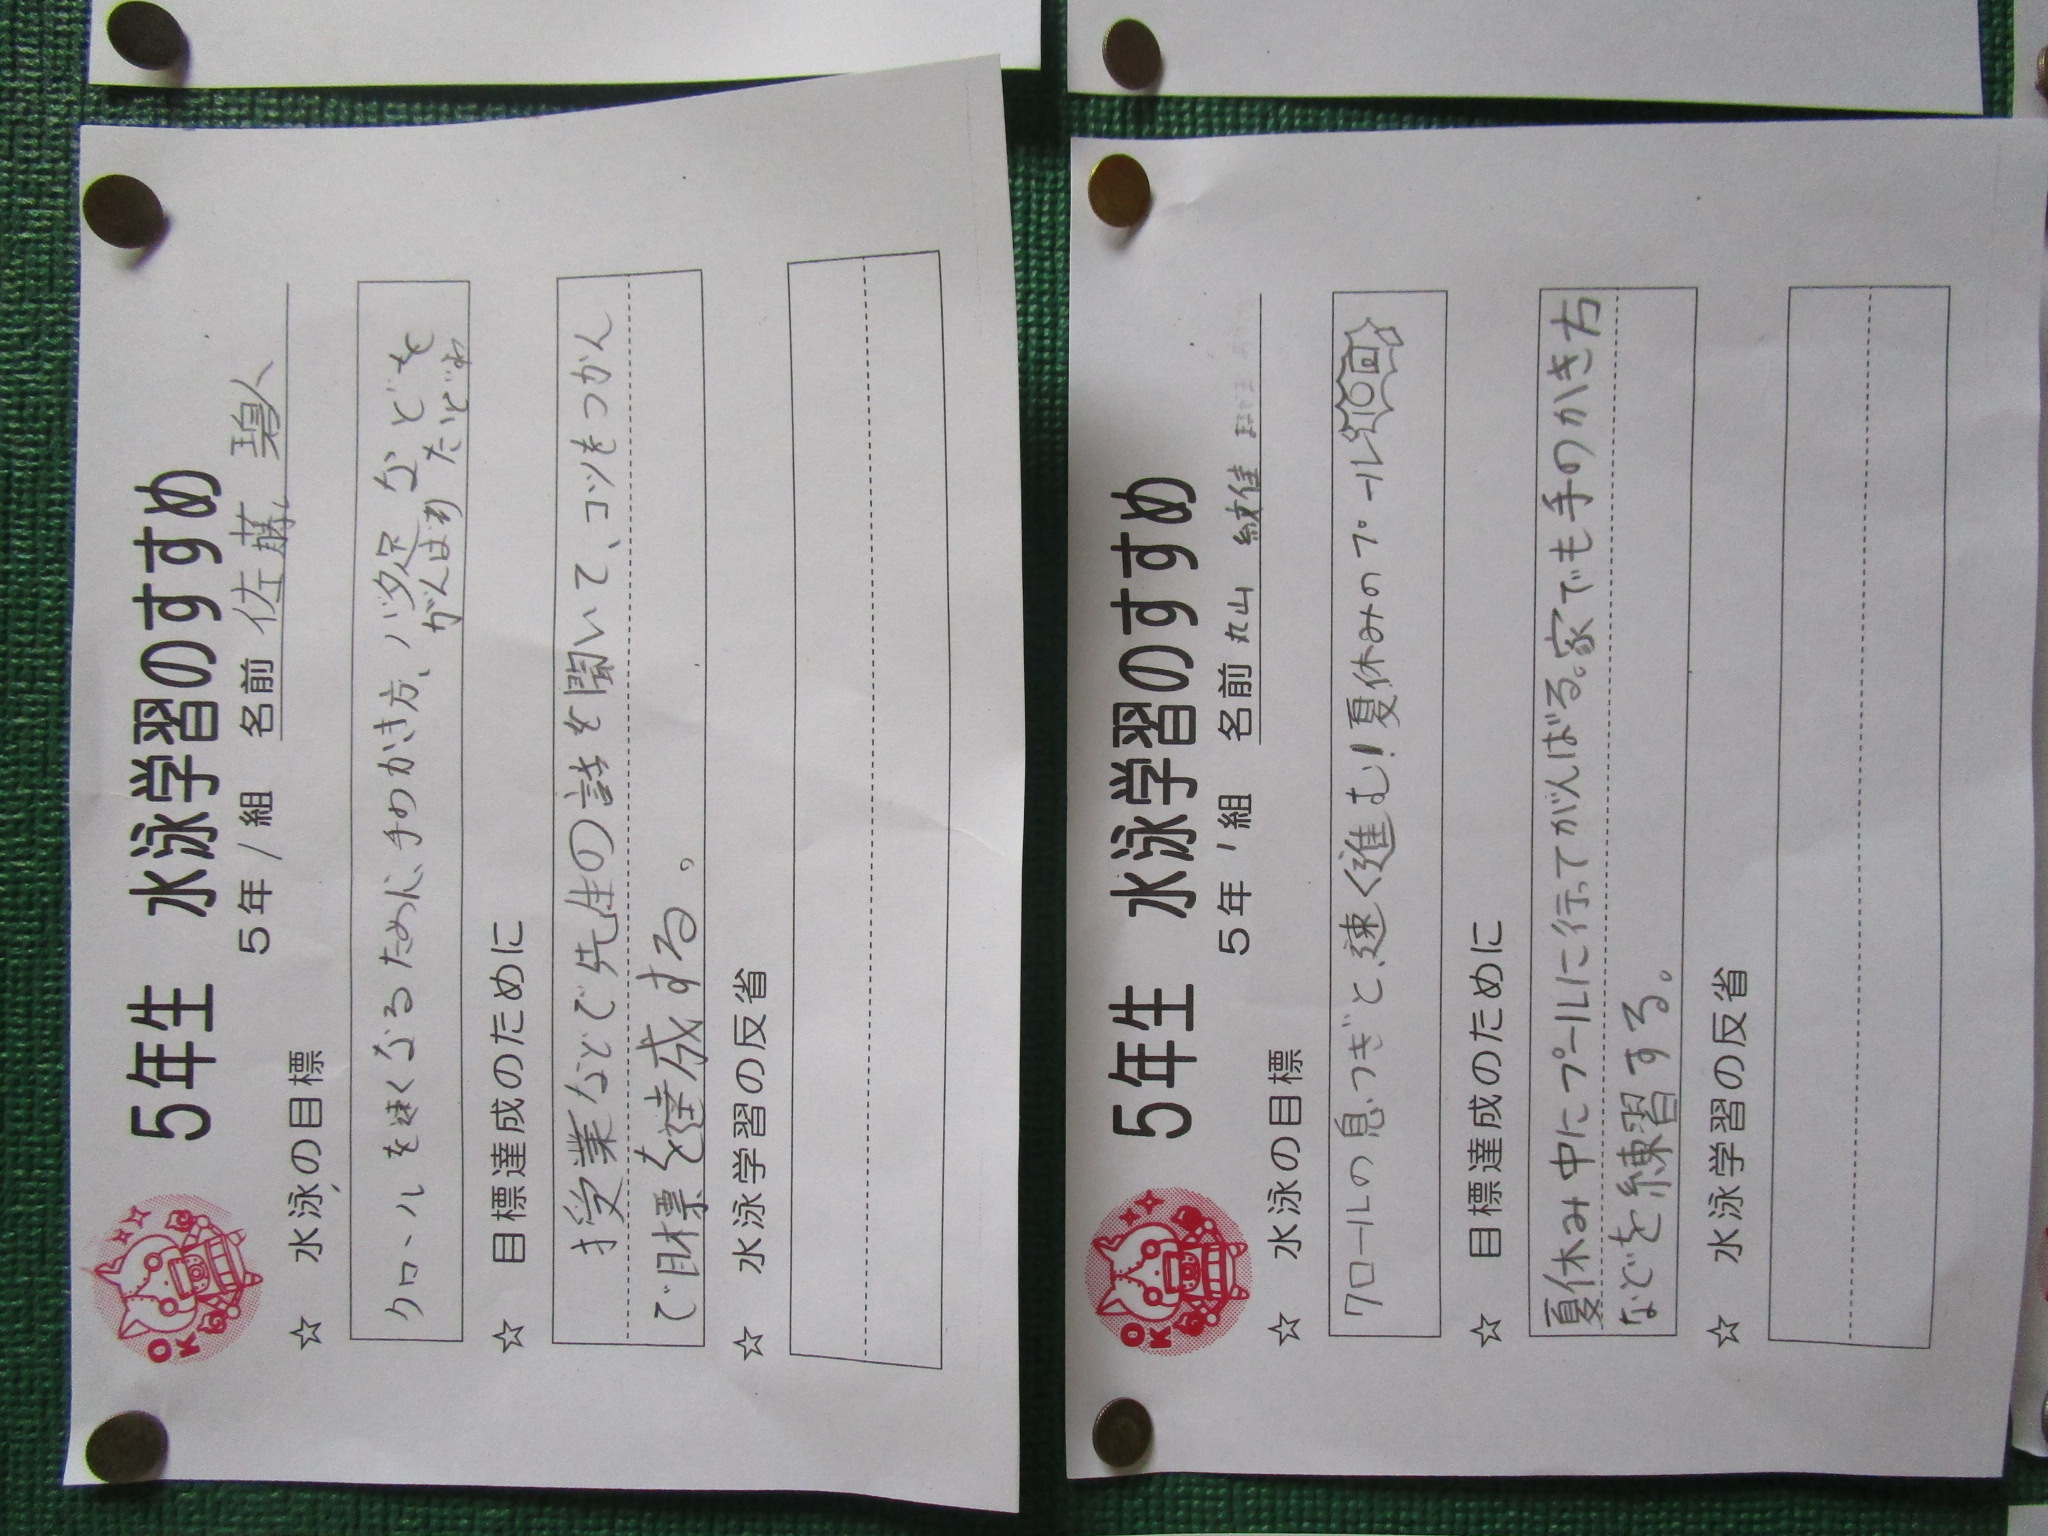 OK
5年生 水泳学習のすすめ
5年1組 名前 佐藤 碧人
☆ 水泳の目標
クロールを速くなるために、手のかき方、バタ足などを
がんばり
☆ 目標達成のために
授業などで先生の話を聞いて、コツをつかん
で目標を達成する。
☆ 水泳学習の反省
OK
5年生 水泳学習のすすめ
5年1組 名前 丸山 紋佳
☆ 水泳の目標
クロールの息つぎと、速く進む!夏休みのプール10回
☆ 目標達成のために
夏休み中にプールに行ってがんばる。家でも手のかき方
などを練習する。
☆ 水泳学習の反省